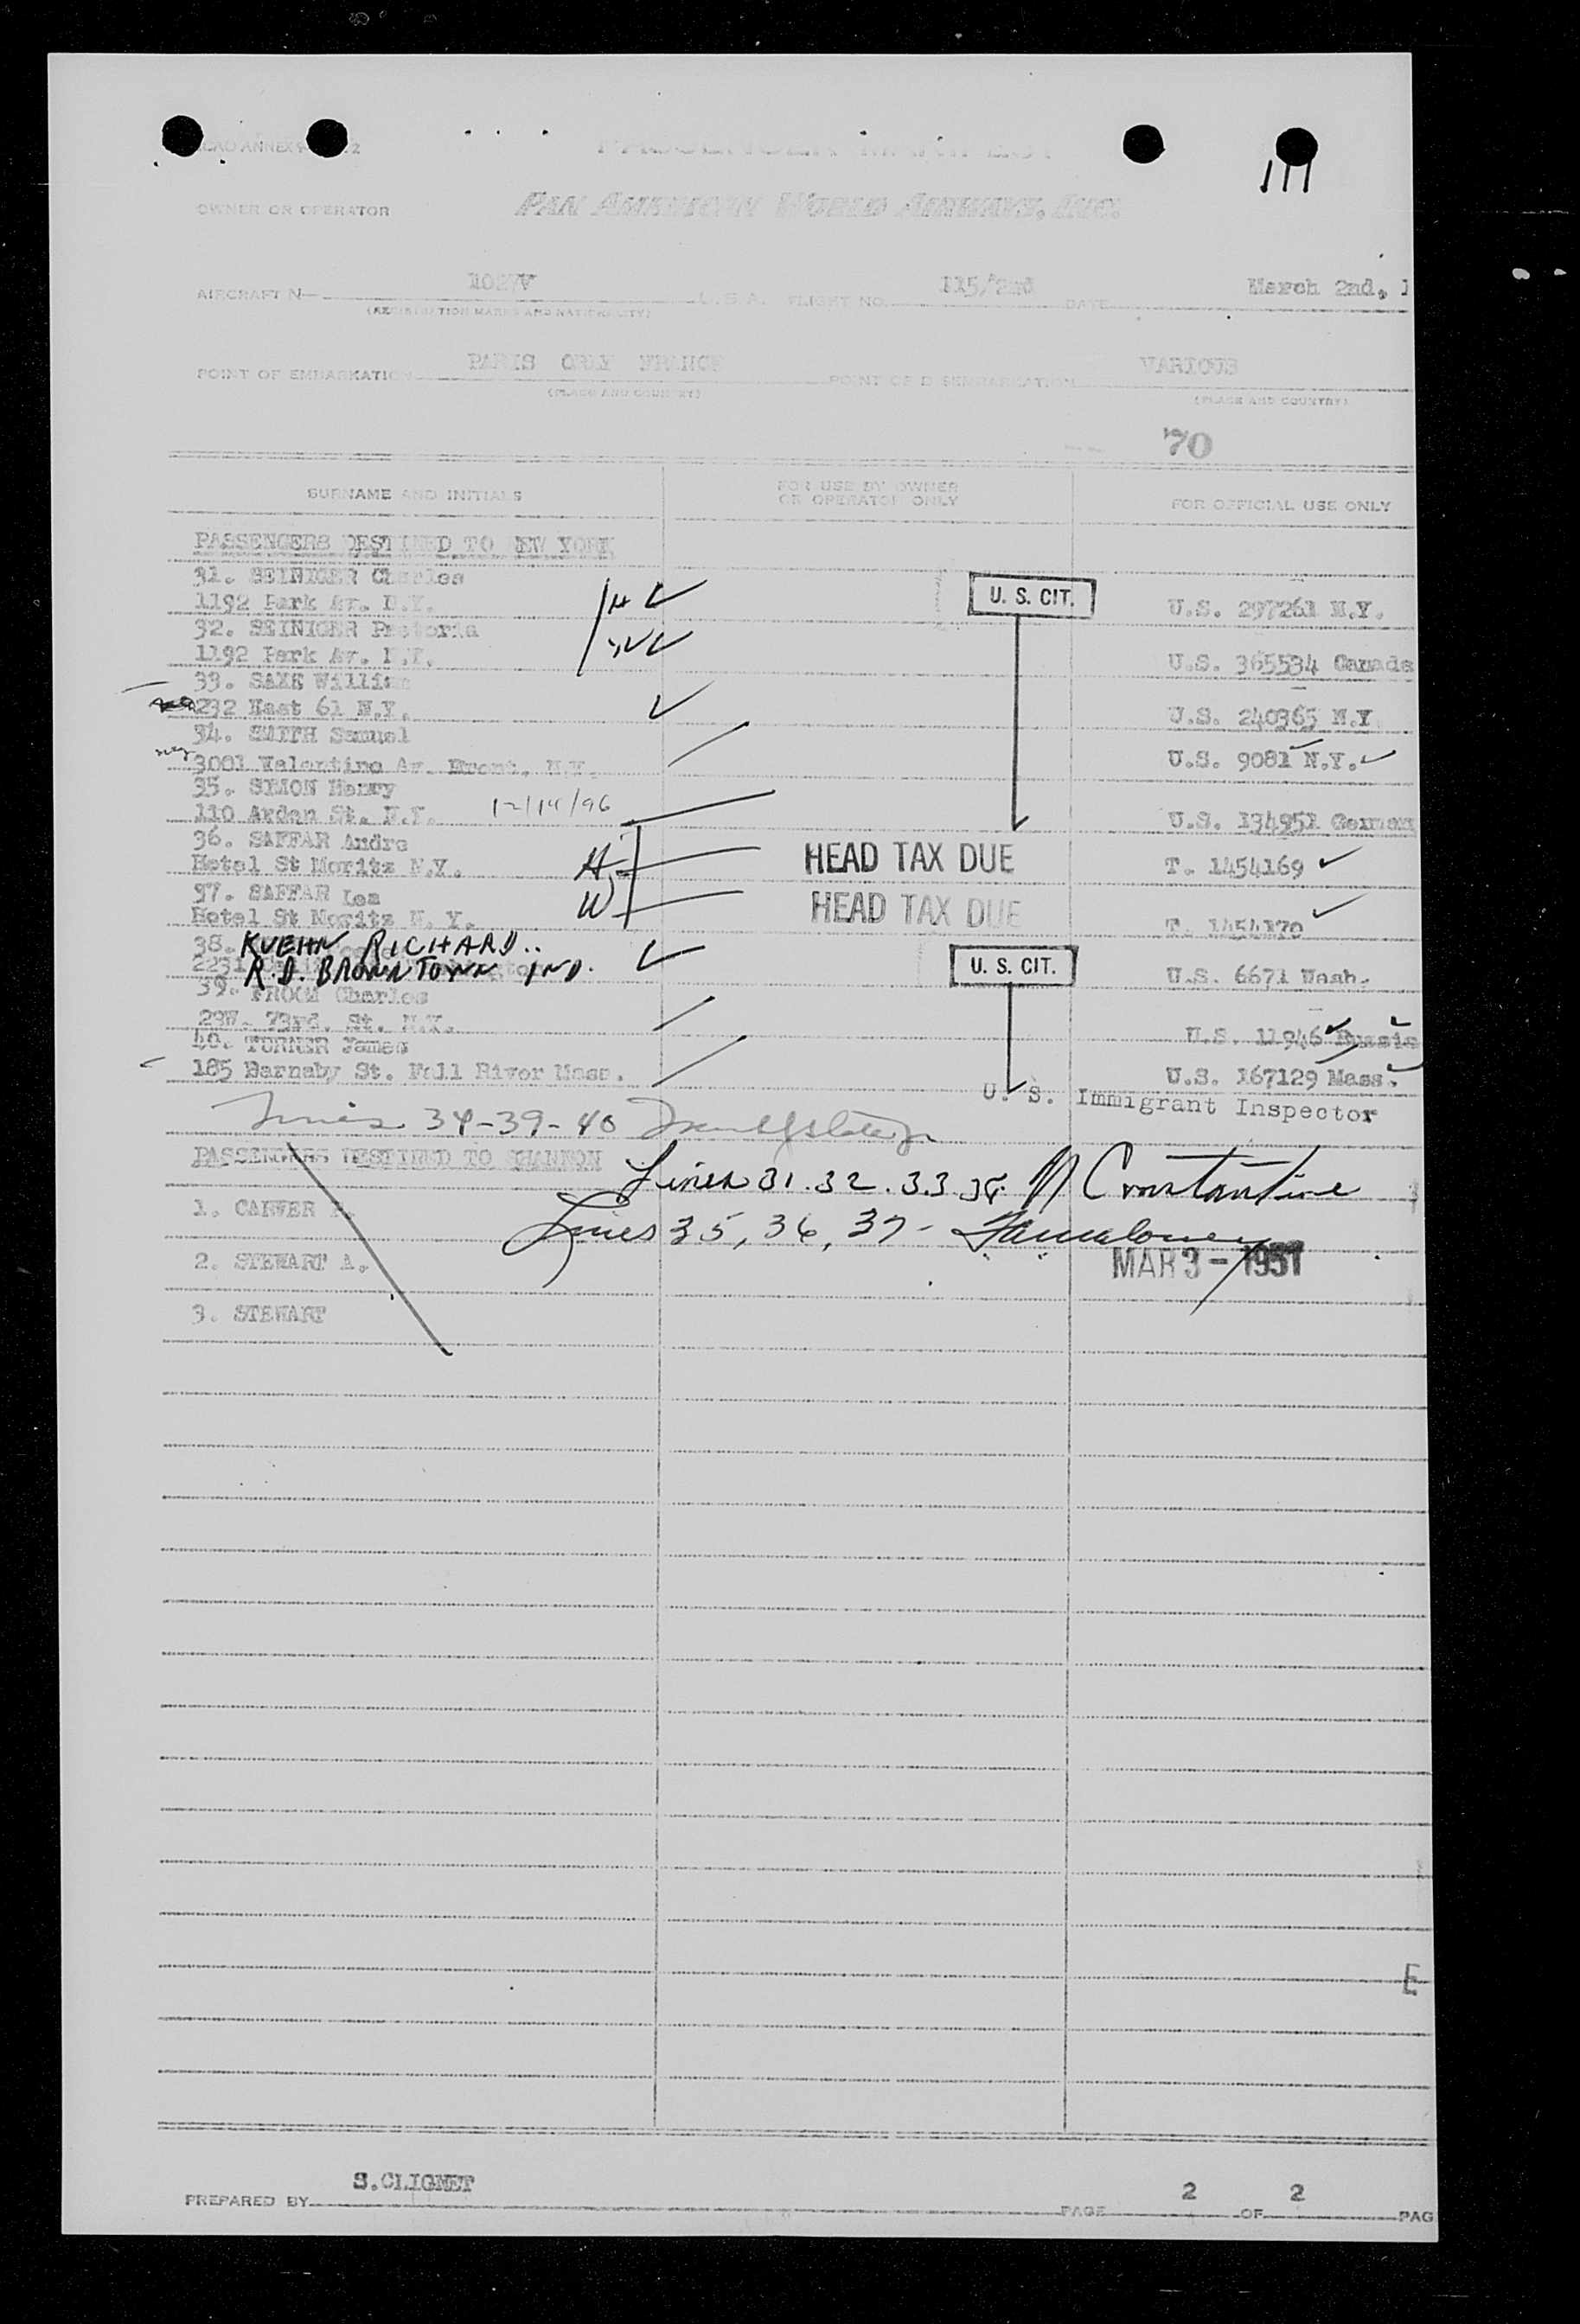 ICAO ANNEX 9
111
OWNER OR OPERATOR PAN AMERICAN WORLD AIRWAYS, INC.
AIRCRAFT N— 1027V U.S.A. FLIGHT NO. 115/2nd DATE March 2nd, 1
(REGISTRATION MARKS AND NATIONALITY)
POINT OF EMBARKATION PARIS ORLY FRANCE POINT OF DISEMBARKATION VARIOUS
(PLACE AND COUNTRY) (PLACE AND COUNTRY)
70
SURNAME AND INITIALS FOR USE BY OWNER OR OPERATOR ONLY FOR OFFICIAL USE ONLY
PASSENGERS DESTINED TO NEW YORK
31. SEINIGER Charles
1192 Park Av. N.Y. H U. S. CIT. U.S. 297261 N.Y.
32. SEINIGER Pretoria
1192 Park Av. N.Y. W U.S. 365534 Canada
33. SAXE William
232 East 61 N.Y. U.S. 240365 N.Y
34. SMITH Samuel
3001 Valentino Av. Bronx, N.Y. U.S. 9081 N.Y.
35. SIMON Henry
110 Arden St. N.Y. 12/14/96 U.S. 134951 German
36. SAFFAR Andre
Hotel St Moritz N.Y. H HEAD TAX DUE T. 1454169
37. SAFFAR Lea
Hotel St Moritz N. Y. W HEAD TAX DUE T. 1454170
38. KUEHN RICHARD..
R.D. BROWNTOWN IND. U. S. CIT. U.S. 6671 Wash.
39. FROOM Charles
29W. 73rd. St. N.Y. U.S. 11946 Russia
40. TURNER James
185 Barnaby St. Fall River Mass. U.S. 167129 Mass.
U. S. Immigrant Inspector
Lines 34-39-40
PASSENGERS DESTINED TO SHANNON
Lines 31. 32. 33 38. N Constantine
1. CARVER
Lines 35, 36, 37-
2. STEWART A. MAR 3 - 1951
3. STEWART
E
PREPARED BY S.CLIGNET PAGE 2 OF 2 PAG